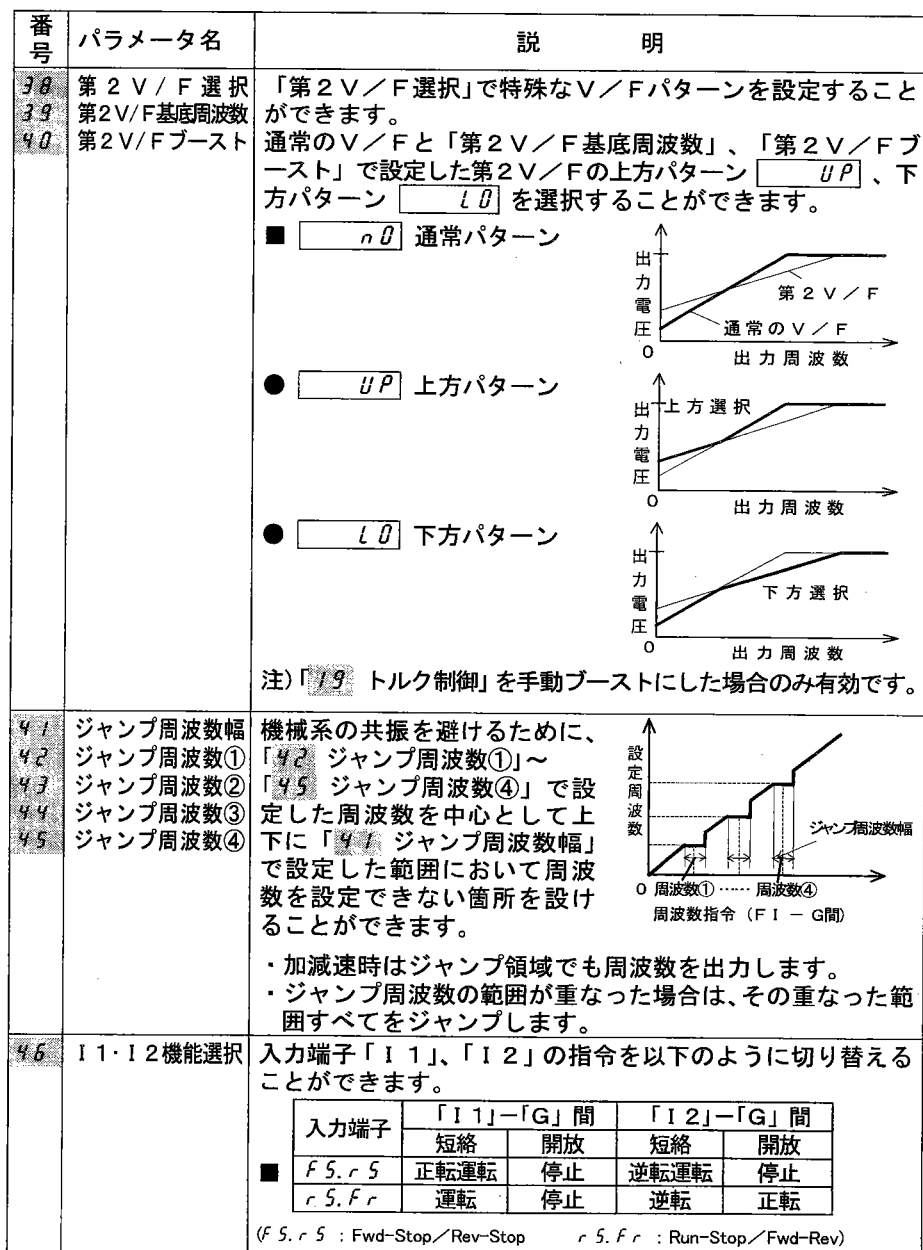 番号 パラメータ名 説 明
38 第2V/F選択
39 第2V/F基底周波数
40 第2V/Fブースト
「第2V/F選択」で特殊なV/Fパターンを設定すること
ができます。
通常のV/Fと「第2V/F基底周波数」、「第2V/Fブ
ースト」で設定した第2V/Fの上方パターン UP 、下
方パターン L0 を選択することができます。
■ n0 通常パターン
出力電圧
第2V/F
通常のV/F
0
出力周波数
● UP 上方パターン
出力電圧
上方選択
0
出力周波数
● L0 下方パターン
出力電圧
下方選択
0
出力周波数
注)「19 トルク制御」を手動ブーストにした場合のみ有効です。
41 ジャンプ周波数幅
42 ジャンプ周波数①
43 ジャンプ周波数②
44 ジャンプ周波数③
45 ジャンプ周波数④
機械系の共振を避けるために、
「42 ジャンプ周波数①」~
「45 ジャンプ周波数④」で設
定した周波数を中心として上
下に「41 ジャンプ周波数幅」
で設定した範囲において周波
数を設定できない箇所を設け
ることができます。
設定周波数
ジャンプ周波数幅
0 周波数① …… 周波数④
周波数指令(FI-G間)
・加減速時はジャンプ領域でも周波数を出力します。
・ジャンプ周波数の範囲が重なった場合は、その重なった範
囲すべてをジャンプします。
46 I1・I2機能選択
入力端子「I1」、「I2」の指令を以下のように切り替える
ことができます。
入力端子 「I1」-「G」間 「I2」-「G」間
短絡 開放 短絡 開放
■ FS.rS 正転運転 停止 逆転運転 停止
rS.Fr 運転 停止 逆転 正転
(FS.rS :Fwd-Stop/Rev-Stop rS.Fr :Run-Stop/Fwd-Rev)